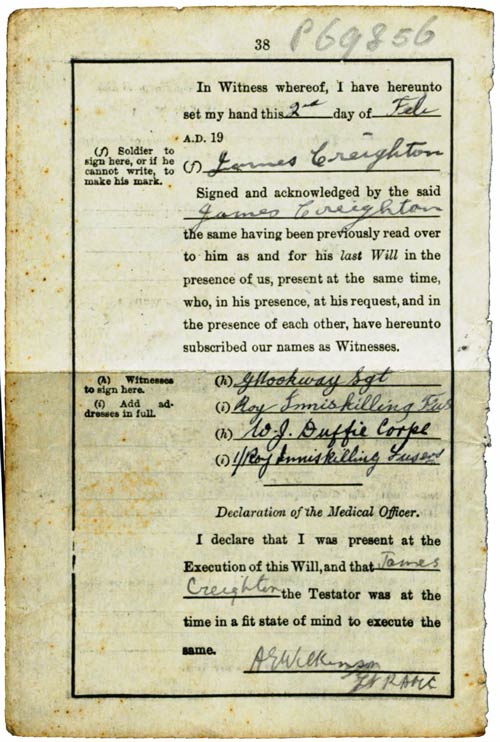 38 P69856
In Witness whereof, I have hereunto
set my hand this 2nd day of Feb
A.D. 19
(f) Soldier to
sign here, or if he
cannot write, to
make his mark.
(f) James Creighton
Signed and acknowledged by the said
James Creighton
the same having been previously read over
to him as and for his last Will in the
presence of us, present at the same time,
who, in his presence, at his request, and in
the presence of each other, have hereunto
subscribed our names as Witnesses.
(h) Witnesses
to sign here.
(i) Add ad-
dresses in full.
(h) Sgt
(i) Roy Inniskilling Fus
(h) W. J. Duffie Corpl
(i) 1/Roy Inniskilling Fusers
Declaration of the Medical Officer.
I declare that I was present at the
Execution of this Will, and that James
Creighton the Testator was at the
time in a fit state of mind to execute the
same.
A E Wilkinson
Lt RAMC